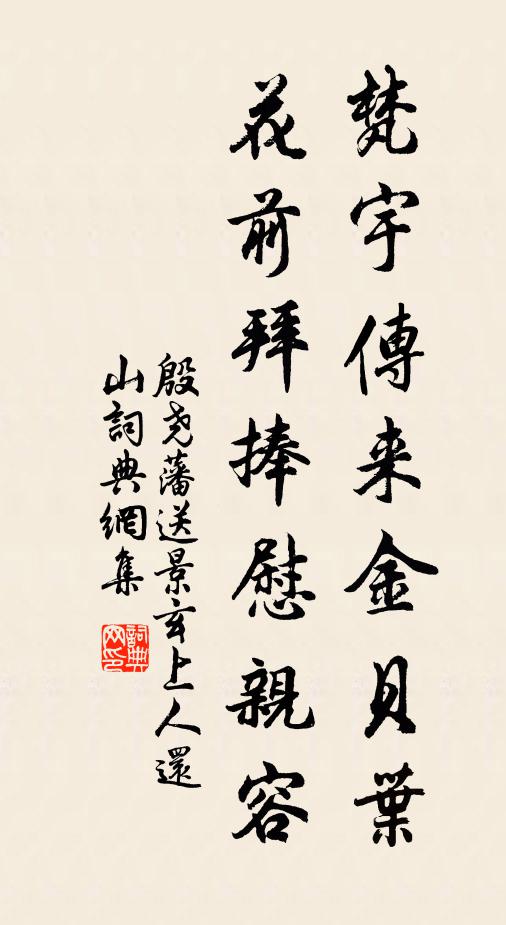 梵宇傳来金貝葉
花前拜捧慰親容
殷尧藩送景玄上人還
山詞典網集
詞典
网印